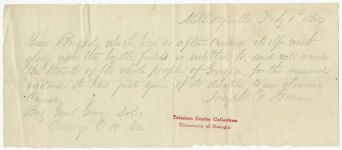 Milledgeville Feby 1st 1864
Your Brigade which has so often covered itself with
glory upon the battle fields is entitled to, and will receive
the thanks of the whole people of Georgia, for the renewed
evidence it has just given of its devotion to our glorious
Cause
Joseph E Brown
Brig Genl George Doles
Orange C H Va
Telamon Cuyler Collection
University of Georgia